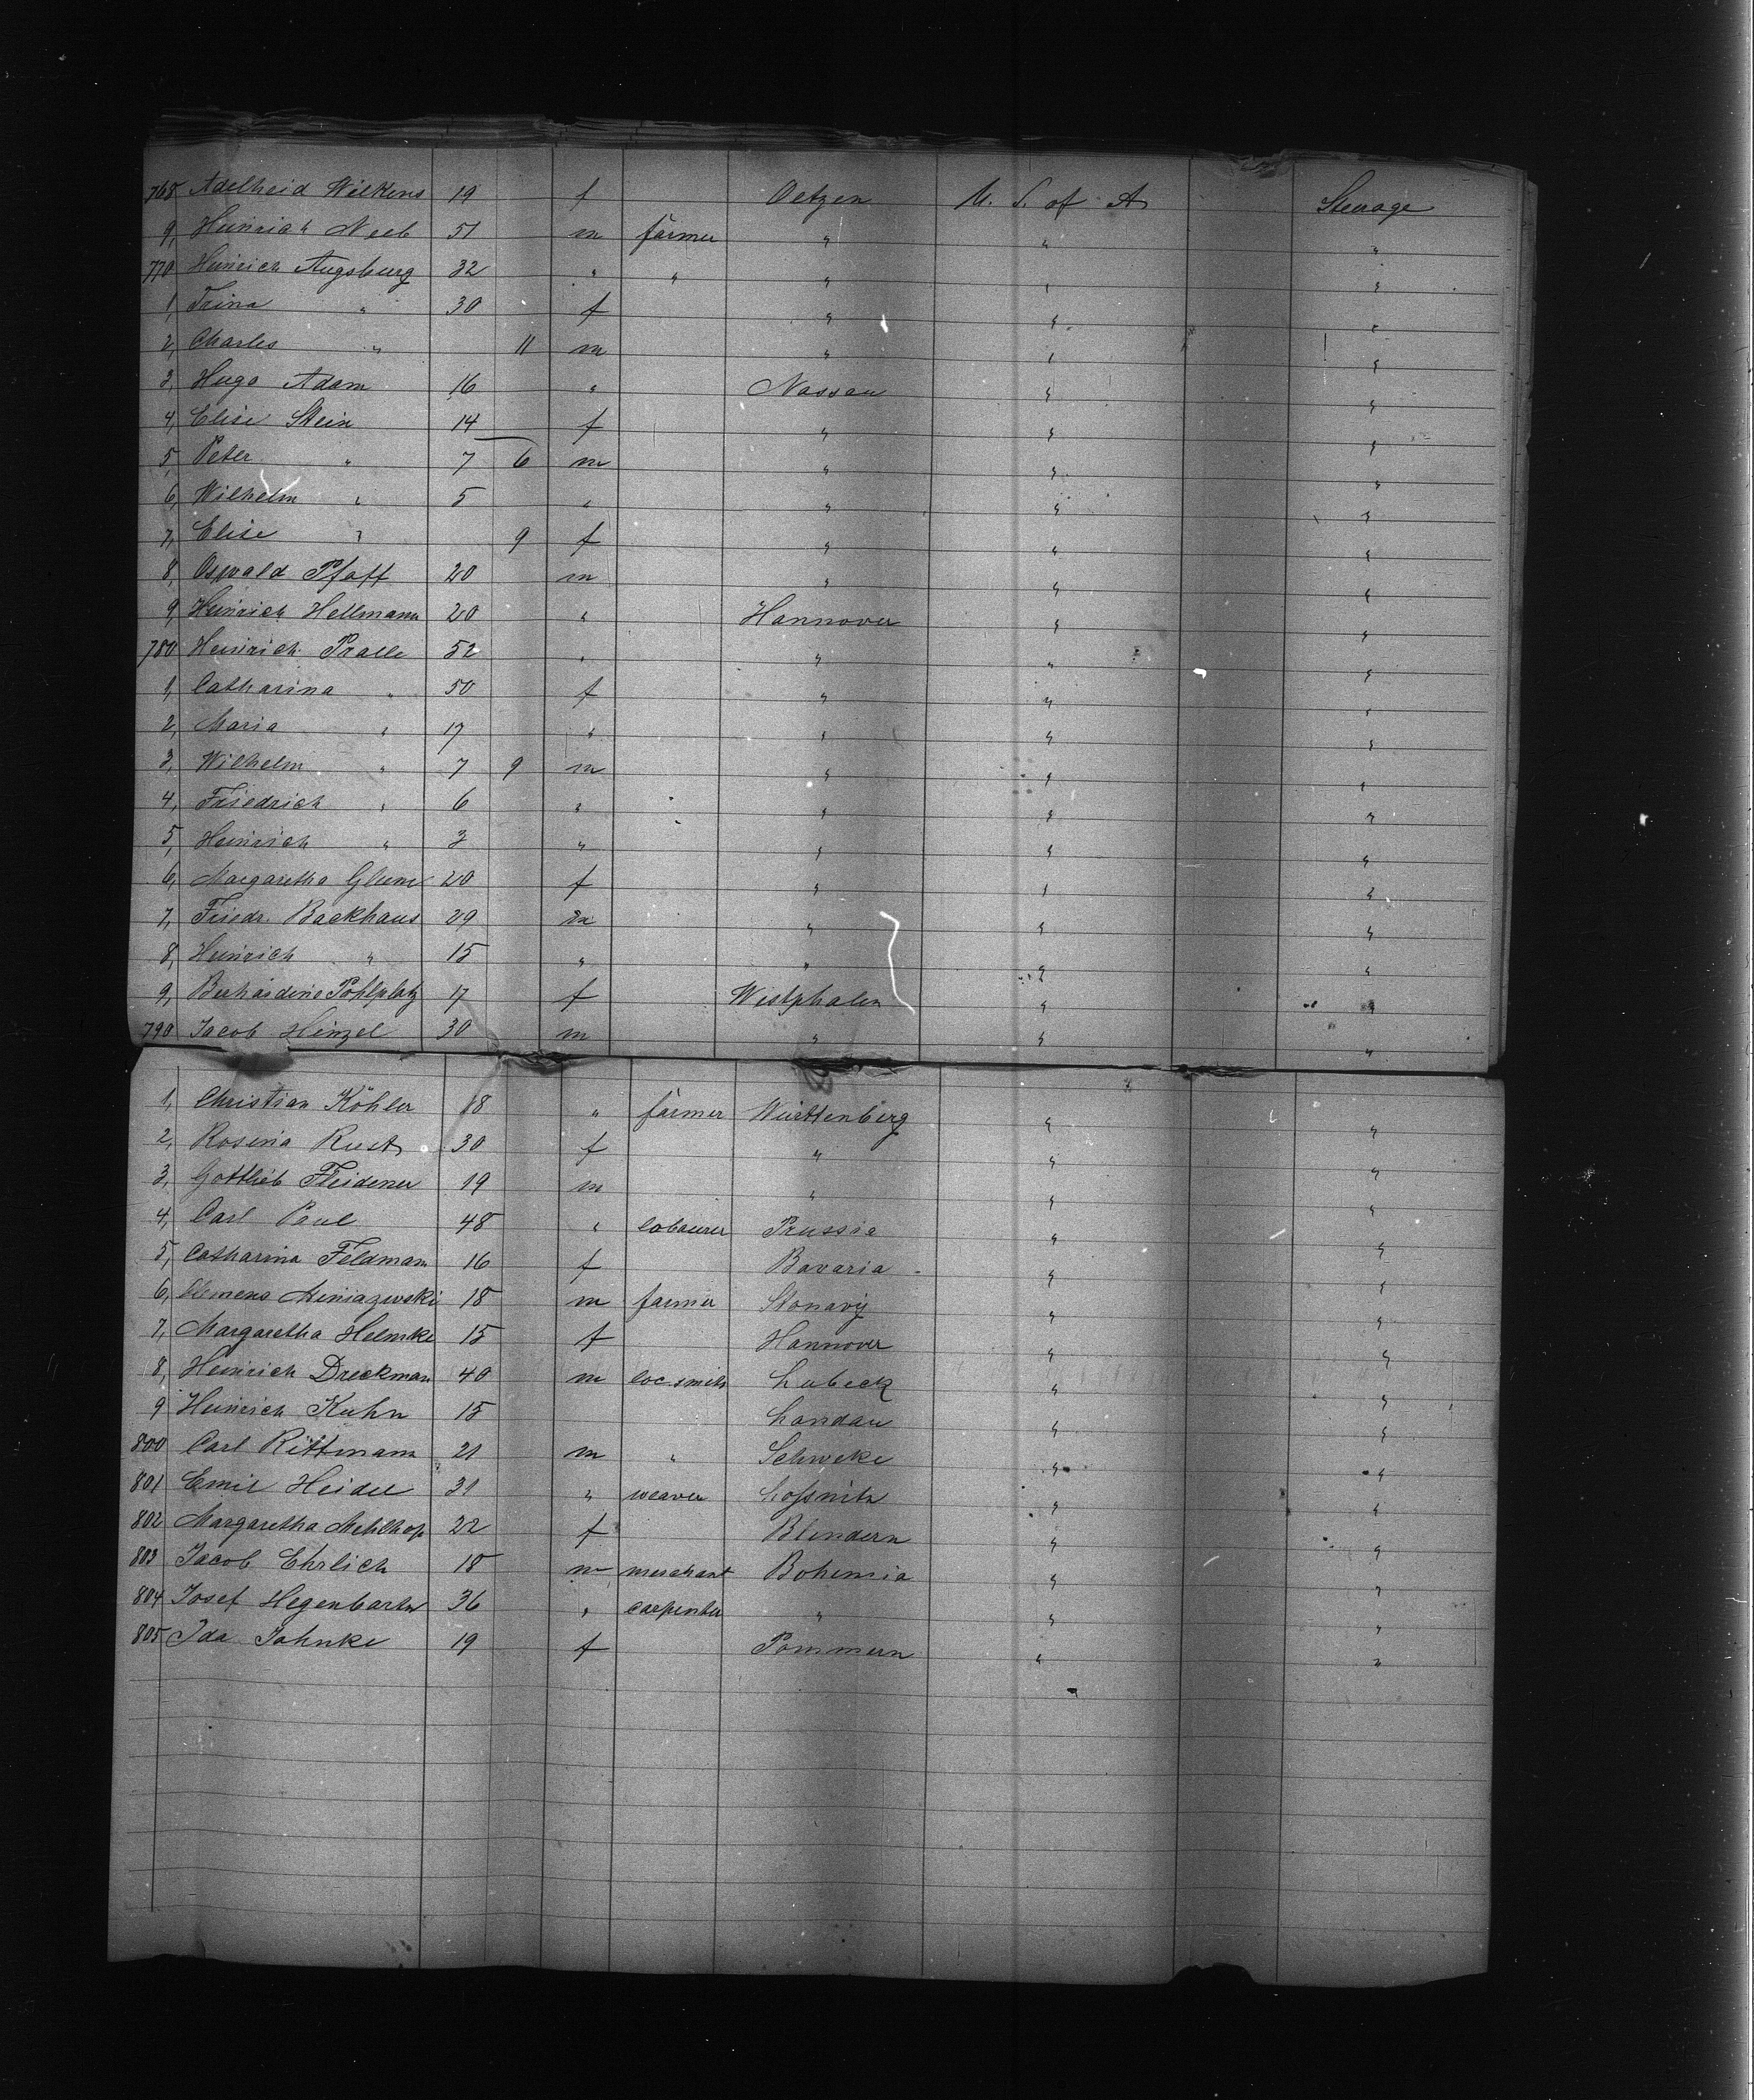 768 Adelheid Wilkens 19 f Oetzen U. S. of A Steerage
9, Heinrich Neeb 51 m farmer " " "
770 Heinrich Augsburg 32 " " " " "
1, Trina " 30 f " " "
2, Charles " 11 m " " "
3, Hugo Adam 16 " Nassau " "
4, Elise Stein 14 f " " "
5, Peter " 7 6 m " " "
6, Wilhelm " 5 " " " "
7, Elise " 9 f " " "
8, Oswald Pfaff 20 m " " "
9, Heinrich Hellmann 20 " Hannover " "
780 Heinrich Pralle 52 " " " "
1, Catharina " 50 f " " "
2, Maria " 17 " " " "
3, Wilhelm " 7 9 m " " "
4, Friedrich " 6 " " " "
5, Heinrich " 3 " " " "
6, Margaretha 20 f " " "
7, Friedr. Backhaus 29 m " " "
8, Heinrich " 15 " " " "
9, Pohlplatz 17 f Westphalen " "
790 Jacob Hinzel 30 m " " "
1, Christian Köhler 18 " farmer Württenberg " "
2, Rosina Rust 30 f " " "
3, Gottlieb Fleidener 19 m " " "
4, Carl Paul 48 " labourer Prussia " "
5, Catharina Feldmann 16 f Bavaria " "
6, Clemens 18 m farmer " "
7, Margaretha Helmke 15 f Hannover " "
8, Heinrich Dreckman 40 m locsmith Lubeck " "
9 Heinrich Kuhn 15 Landau " "
800 Carl Rittmann 21 m " Schweke " "
801 Emil Heidel 31 " weaver " "
802 Margaretha Mehlhop 22 f Blendern " "
803 Jacob Ehrlich 18 m merchant Bohemia " "
804 Josef Hegenbarth 36 " carpenter " " "
805 Ida Jahnke 19 f Pommern " "